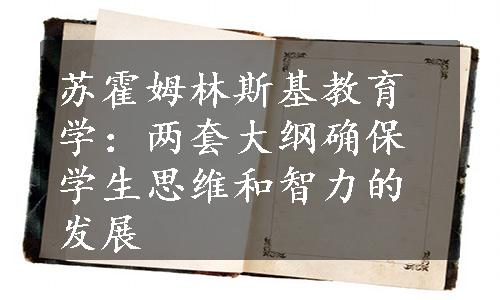 苏霍姆林斯基教育
学：两套大纲确保
学生思维和智力的
发展